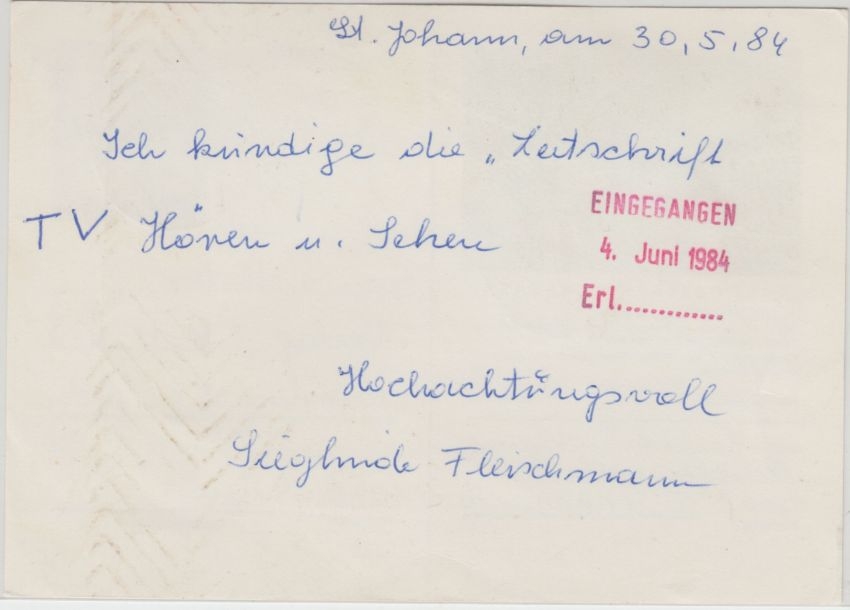 St. Johann, am 30.5.84
Ich kündige die „Zeitschrift
TV Hören u. Sehen
EINGEGANGEN
4. Juni 1984
Erl.............
Hochachtungsvoll
Sieglinde Fleischmann